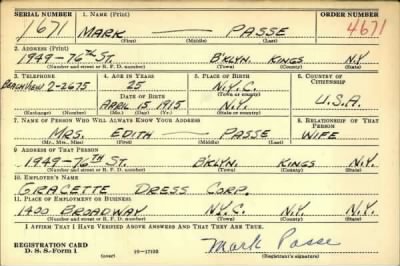 SERIAL NUMBER 1. NAME (Print) ORDER NUMBER
1671 MARK — PASSE 4671
(First) (Middle) (Last)
2. ADDRESS (Print)
1949-76TH ST. B'KLYN. KINGS N.Y.
(Number and street or R. F. D. number) (Town) (County) (State)
3. TELEPHONE 4. AGE IN YEARS 5. PLACE OF BIRTH 6. COUNTRY OF CITIZENSHIP
BEACHVIEW 2-2675 25 N.Y.C. U.S.A.
DATE OF BIRTH (Town or county)
APRIL 15, 1915 N.Y.
(Exchange) (Number) (Mo.) (Day) (Yr.) (State or country)
7. NAME OF PERSON WHO WILL ALWAYS KNOW YOUR ADDRESS 8. RELATIONSHIP OF THAT PERSON
MRS. EDITH — PASSE WIFE
(Mr., Mrs., Miss) (First) (Middle) (Last)
9. ADDRESS OF THAT PERSON
1949-76TH ST. B'KLYN. KINGS N.Y.
(Number and street or R. F. D. number) (Town) (County) (State)
10. EMPLOYER'S NAME
GRACETTE DRESS CORP.
11. PLACE OF EMPLOYMENT OR BUSINESS
1400 BROADWAY N.Y.C. N.Y. N.Y.
(Number and street or R. F. D. number) (Town) (County) (State)
I AFFIRM THAT I HAVE VERIFIED ABOVE ANSWERS AND THAT THEY ARE TRUE.
REGISTRATION CARD
D. S. S. Form 1 Mark Passe
(Registrant's signature)